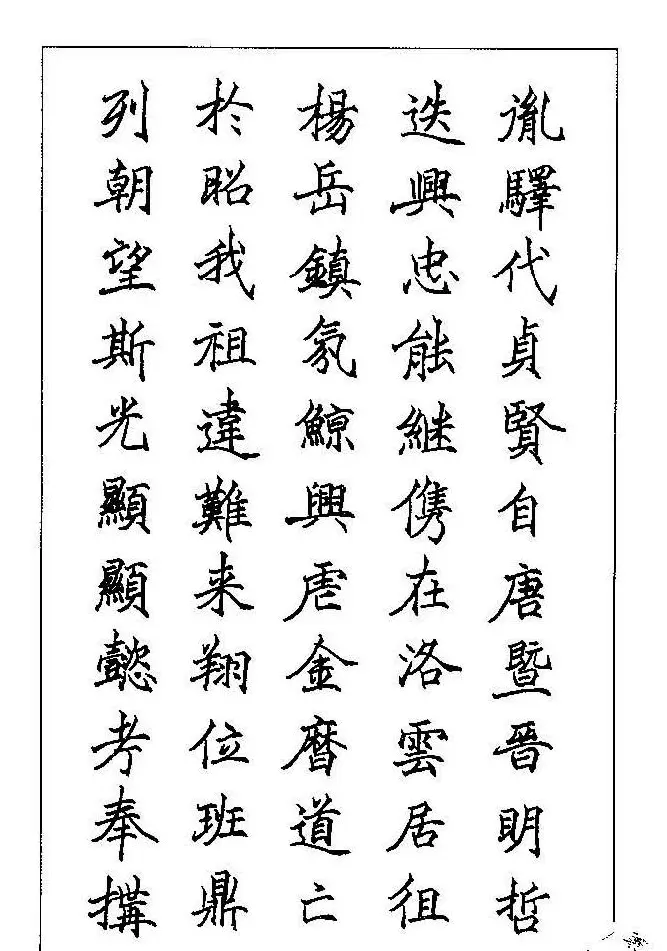 胤驛代貞賢自唐暨晉明哲
迭興忠能継儁在洛雲居徂
楊岳鎮氛鯨興虐金暦道亡
於昭我祖違難来翔位班鼎
列朝望斯光顯顯懿考奉搆